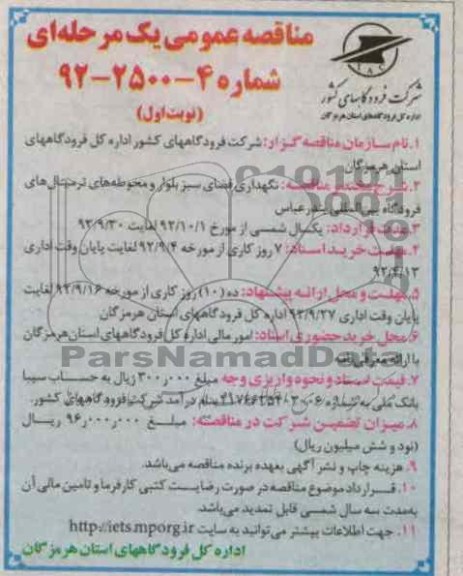 مناقصه عمومی یک مرحله‌ای
شماره ۴-۲۵۰۰-۹۲
(نوبت اول)
شرکت فرودگاههای کشور
اداره کل فرودگاههای استان هرمزگان
۱. نام سازمان مناقصه گزار: شرکت فرودگاههای کشور اداره کل فرودگاههای
استان هرمزگان
۲. شرح مختصر مناقصه: نگهداری فضای سبز بلوار و محوطه‌های ترمینال‌های
فرودگاه بین‌المللی بندرعباس
۳. مدت قرارداد: یکسال شمسی از مورخ ۹۲/۱۰/۱ لغایت ۹۳/۹/۳۰
۴. مهلت خرید اسناد: ۷ روز کاری از مورخه ۹۲/۹/۴ لغایت پایان وقت اداری
۹۲/۹/۱۳
۵. مهلت و محل ارائه پیشنهاد: ده (۱۰) روز کاری از مورخه ۹۲/۹/۱۶ لغایت
پایان وقت اداری ۹۲/۹/۲۷ اداره کل فرودگاههای استان هرمزگان
۶. محل خرید حضوری اسناد: امور مالی اداره کل فرودگاههای استان هرمزگان
با ارائه معرفی نامه
۷. قیمت اسناد و نحوه واریزی وجه مبلغ ۳۰۰٫۰۰۰ ریال به حساب سیبا
بانک ملی به شماره بنام درآمد شرکت فرودگاههای کشور.
۸. میزان تضمین شرکت در مناقصه: مبلغ ۹۶٫۰۰۰٫۰۰۰ ریال
(نود و شش میلیون ریال)
۹. هزینه چاپ و نشر آگهی بعهده برنده مناقصه می‌باشد.
۱۰. قرارداد موضوع مناقصه در صورت رضایت کتبی کارفرما و تامین مالی آن
به‌مدت سه سال شمسی قابل تمدید می‌باشد.
۱۱. جهت اطلاعات بیشتر می‌توانید به سایت http://iets.mporg.ir
اداره کل فرودگاههای استان هرمزگان
ParsNamadData